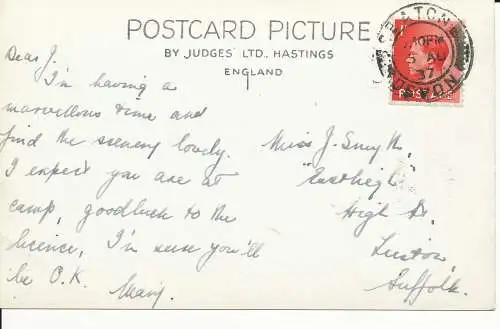 POSTCARD PICTURE
BY JUDGES' LTD., HASTINGS
ENGLAND
10 PM
5 AU
37
Dear J.
I'm having a
marvellous time and
find the scenery lovely.
I expect you are at
camp, goodluck to the
licence, I'm sure you'll
be O.K.
Mary.
Miss J. Smyth,
"Eastleigh"
High St,
Leiston,
Suffolk.